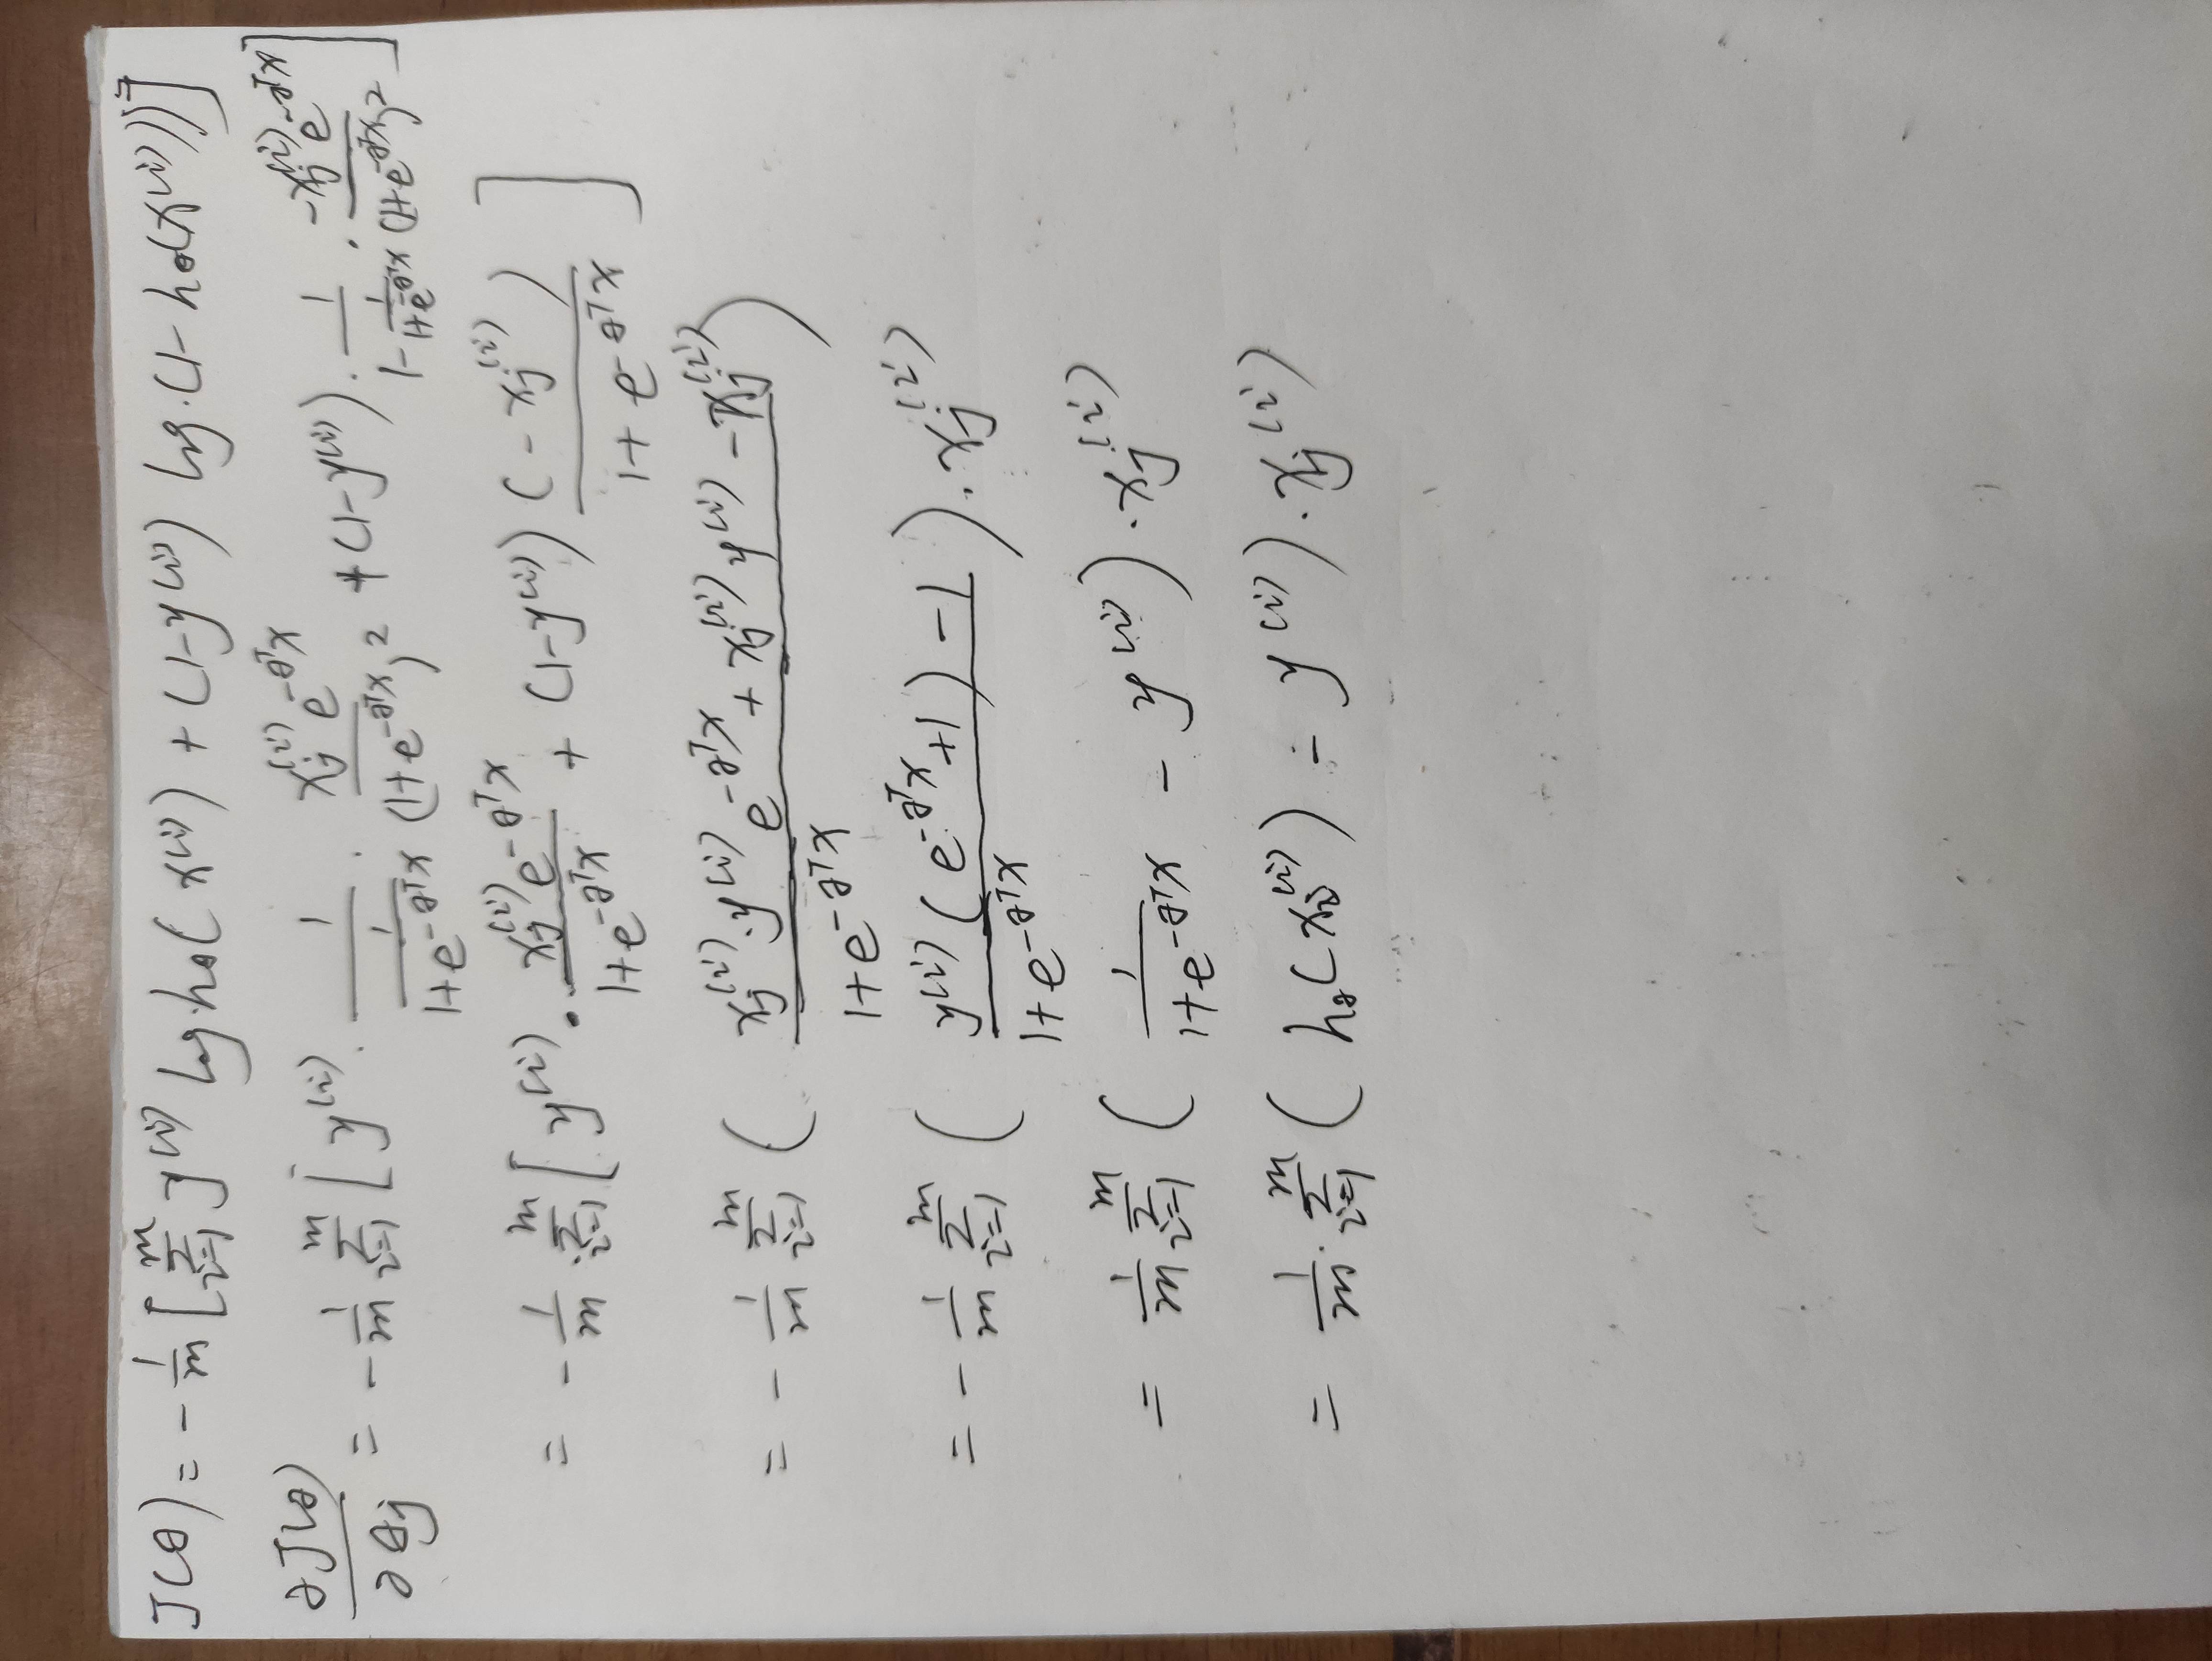 J(θ) = - 1/m [ Σ_{i=1}^{m} y^{(i)} log h_θ( x^{(i)} ) + (1-y^{(i)}) log·(1- h_θ(x^{(i)})) ]
∂J(θ)/∂θ_j = - 1/m Σ_{i=1}^{m} [ y^{(i)} · 1/(1/(1+e^{-θ^T x})) · x_j^{(i)} e^{-θ^T x}/(1+e^{-θ^T x})^2 + (1-y^{(i)}) · 1/(1- 1/(1+e^{-θ^T x})) · -x_j^{(i)} e^{-θ^T x}/(1+e^{-θ^T x})^2 ]
= - 1/m Σ_{i=1}^{m} [ y^{(i)} · x_j^{(i)} e^{-θ^T x}/(1+e^{-θ^T x}) + (1-y^{(i)}) (- x_j^{(i)})/(1+ e^{-θ^T x}) ]
= - 1/m Σ_{i=1}^{m} ( (x_j^{(i)} · y^{(i)} e^{-θ^T x} + x_j^{(i)} y^{(i)} - x_j^{(i)})/(1+e^{-θ^T x}) )
= - 1/m Σ_{i=1}^{m} ( (y^{(i)} ( e^{-θ^T x} +1 ) -1)/(1+e^{-θ^T x}) ) · x_j^{(i)}
= 1/m Σ_{i=1}^{m} ( 1/(1+e^{-θ^T x}) - y^{(i)} ) · x_j^{(i)}
= 1/m · Σ_{i=1}^{m} ( h_θ( x^{(i)} ) - y^{(i)} ) · x_j^{(i)}